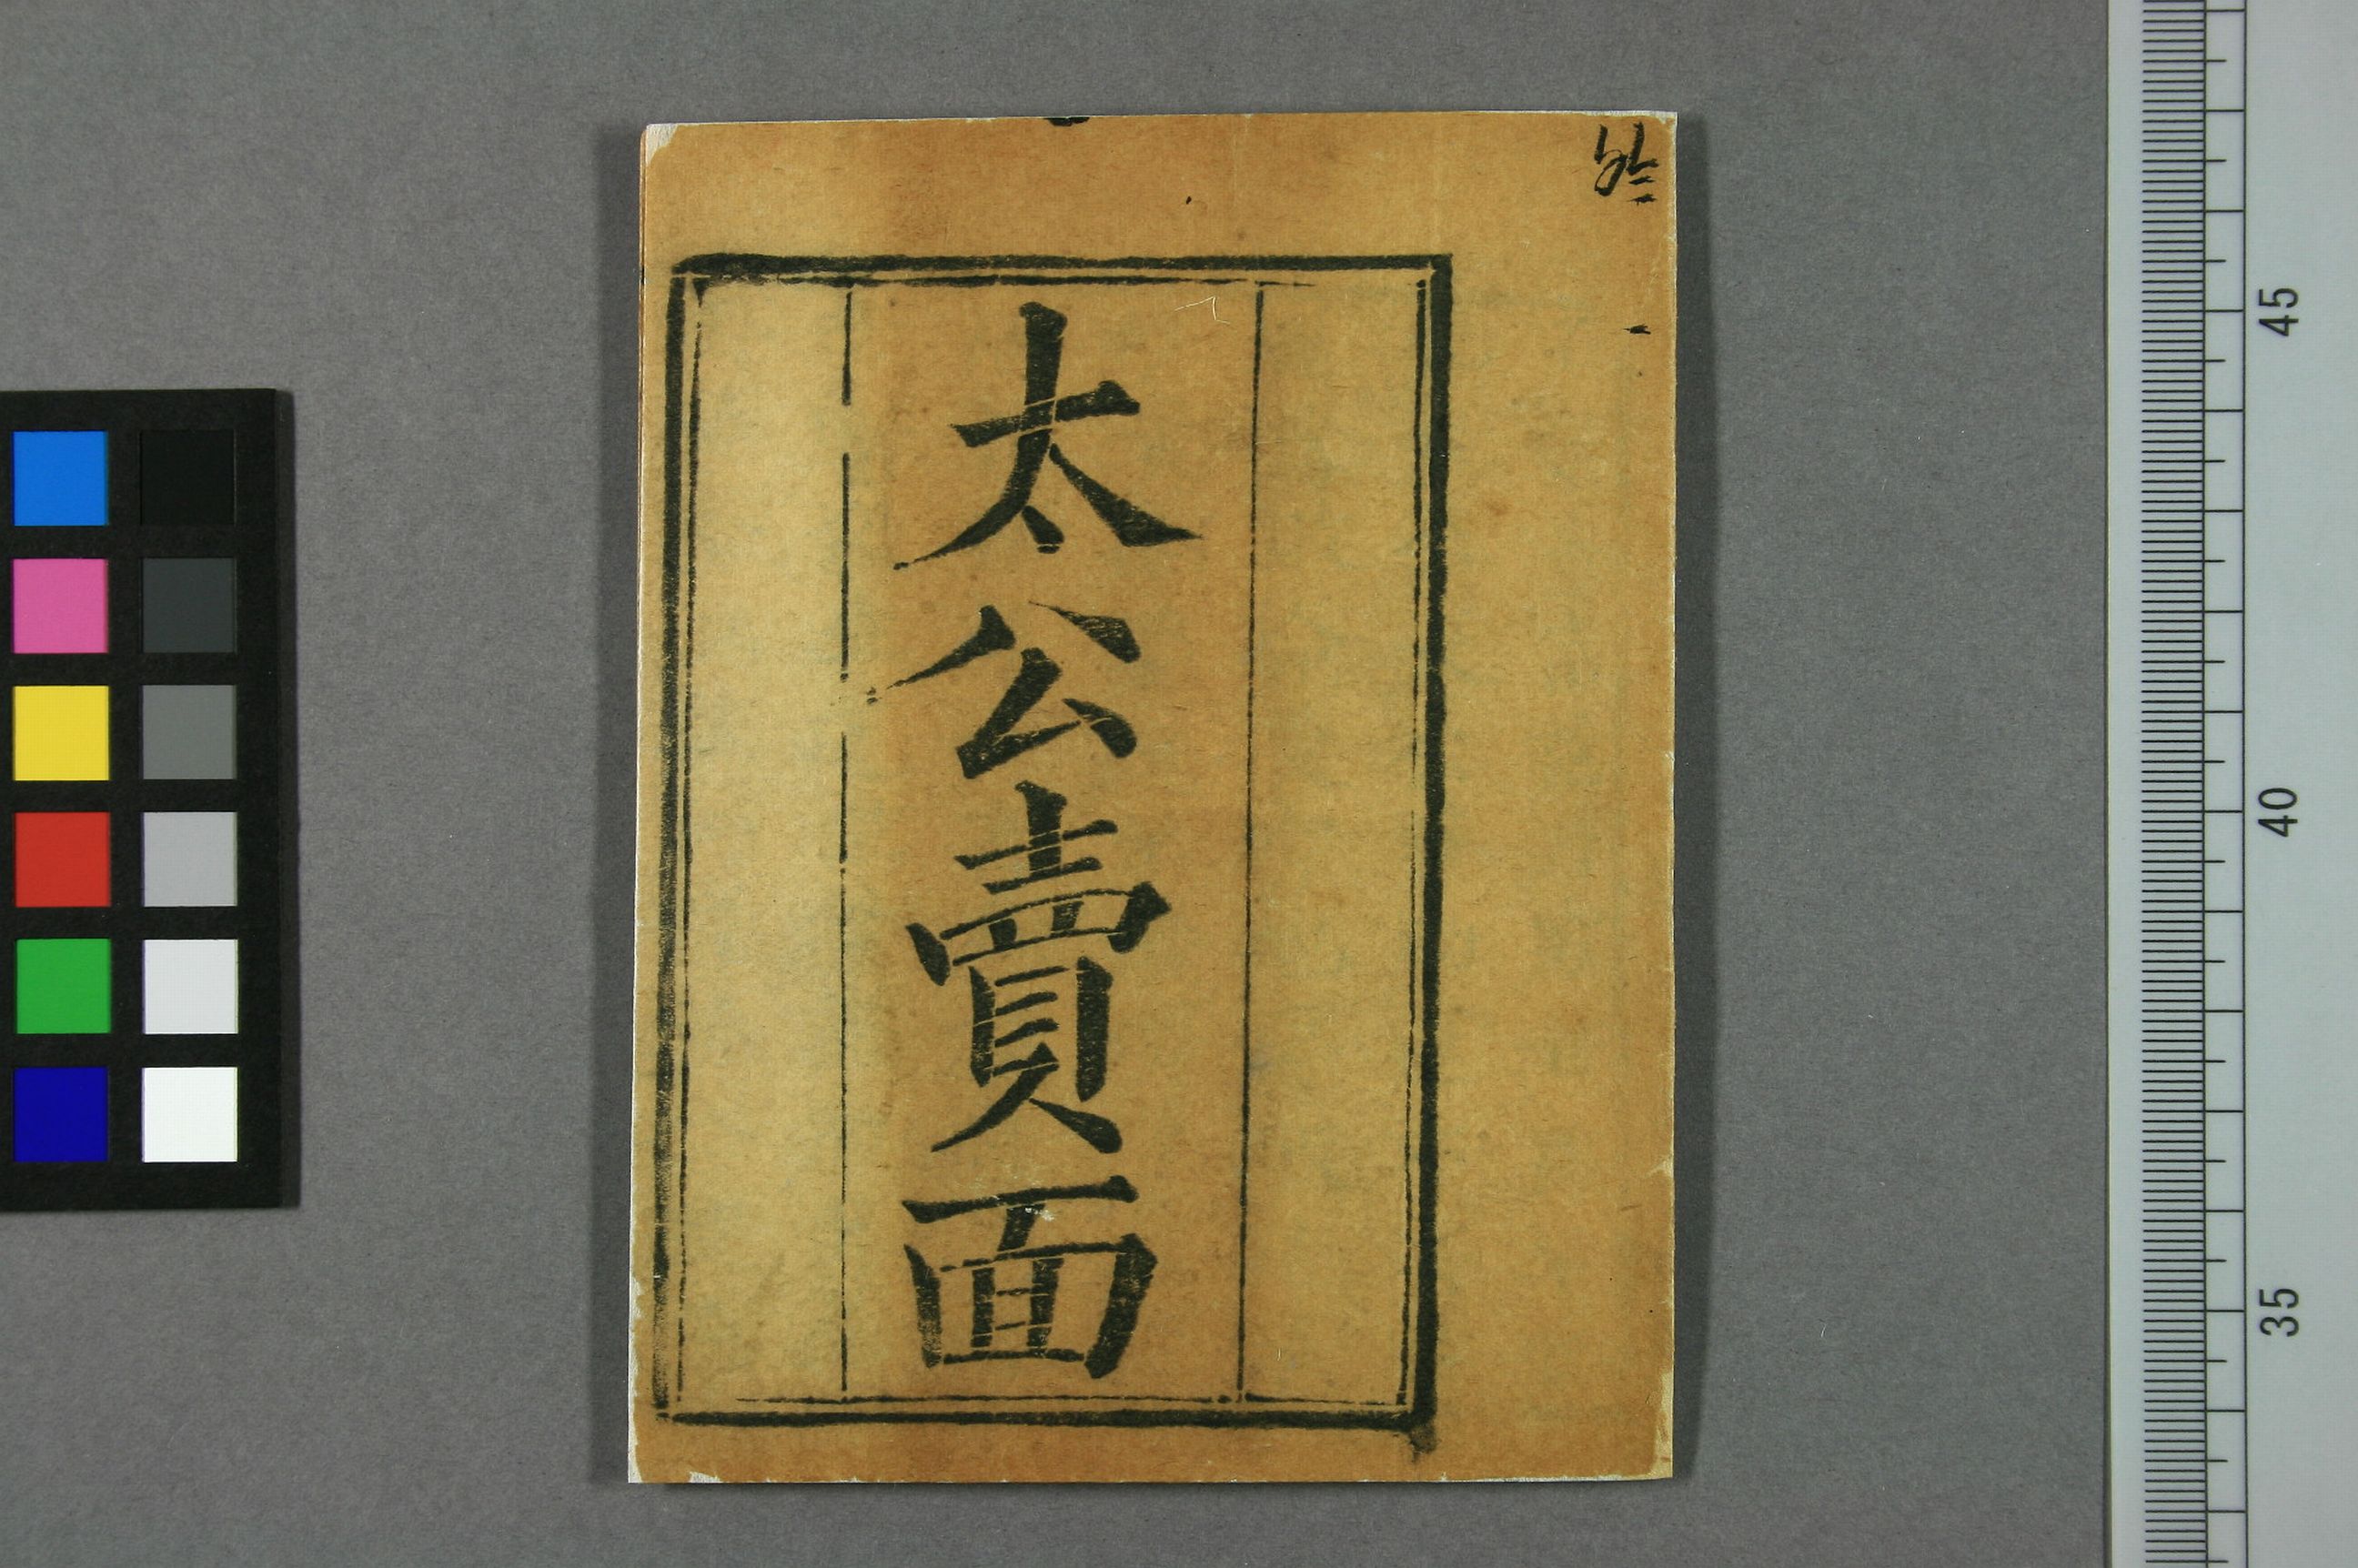 太公賣面
45
40
35